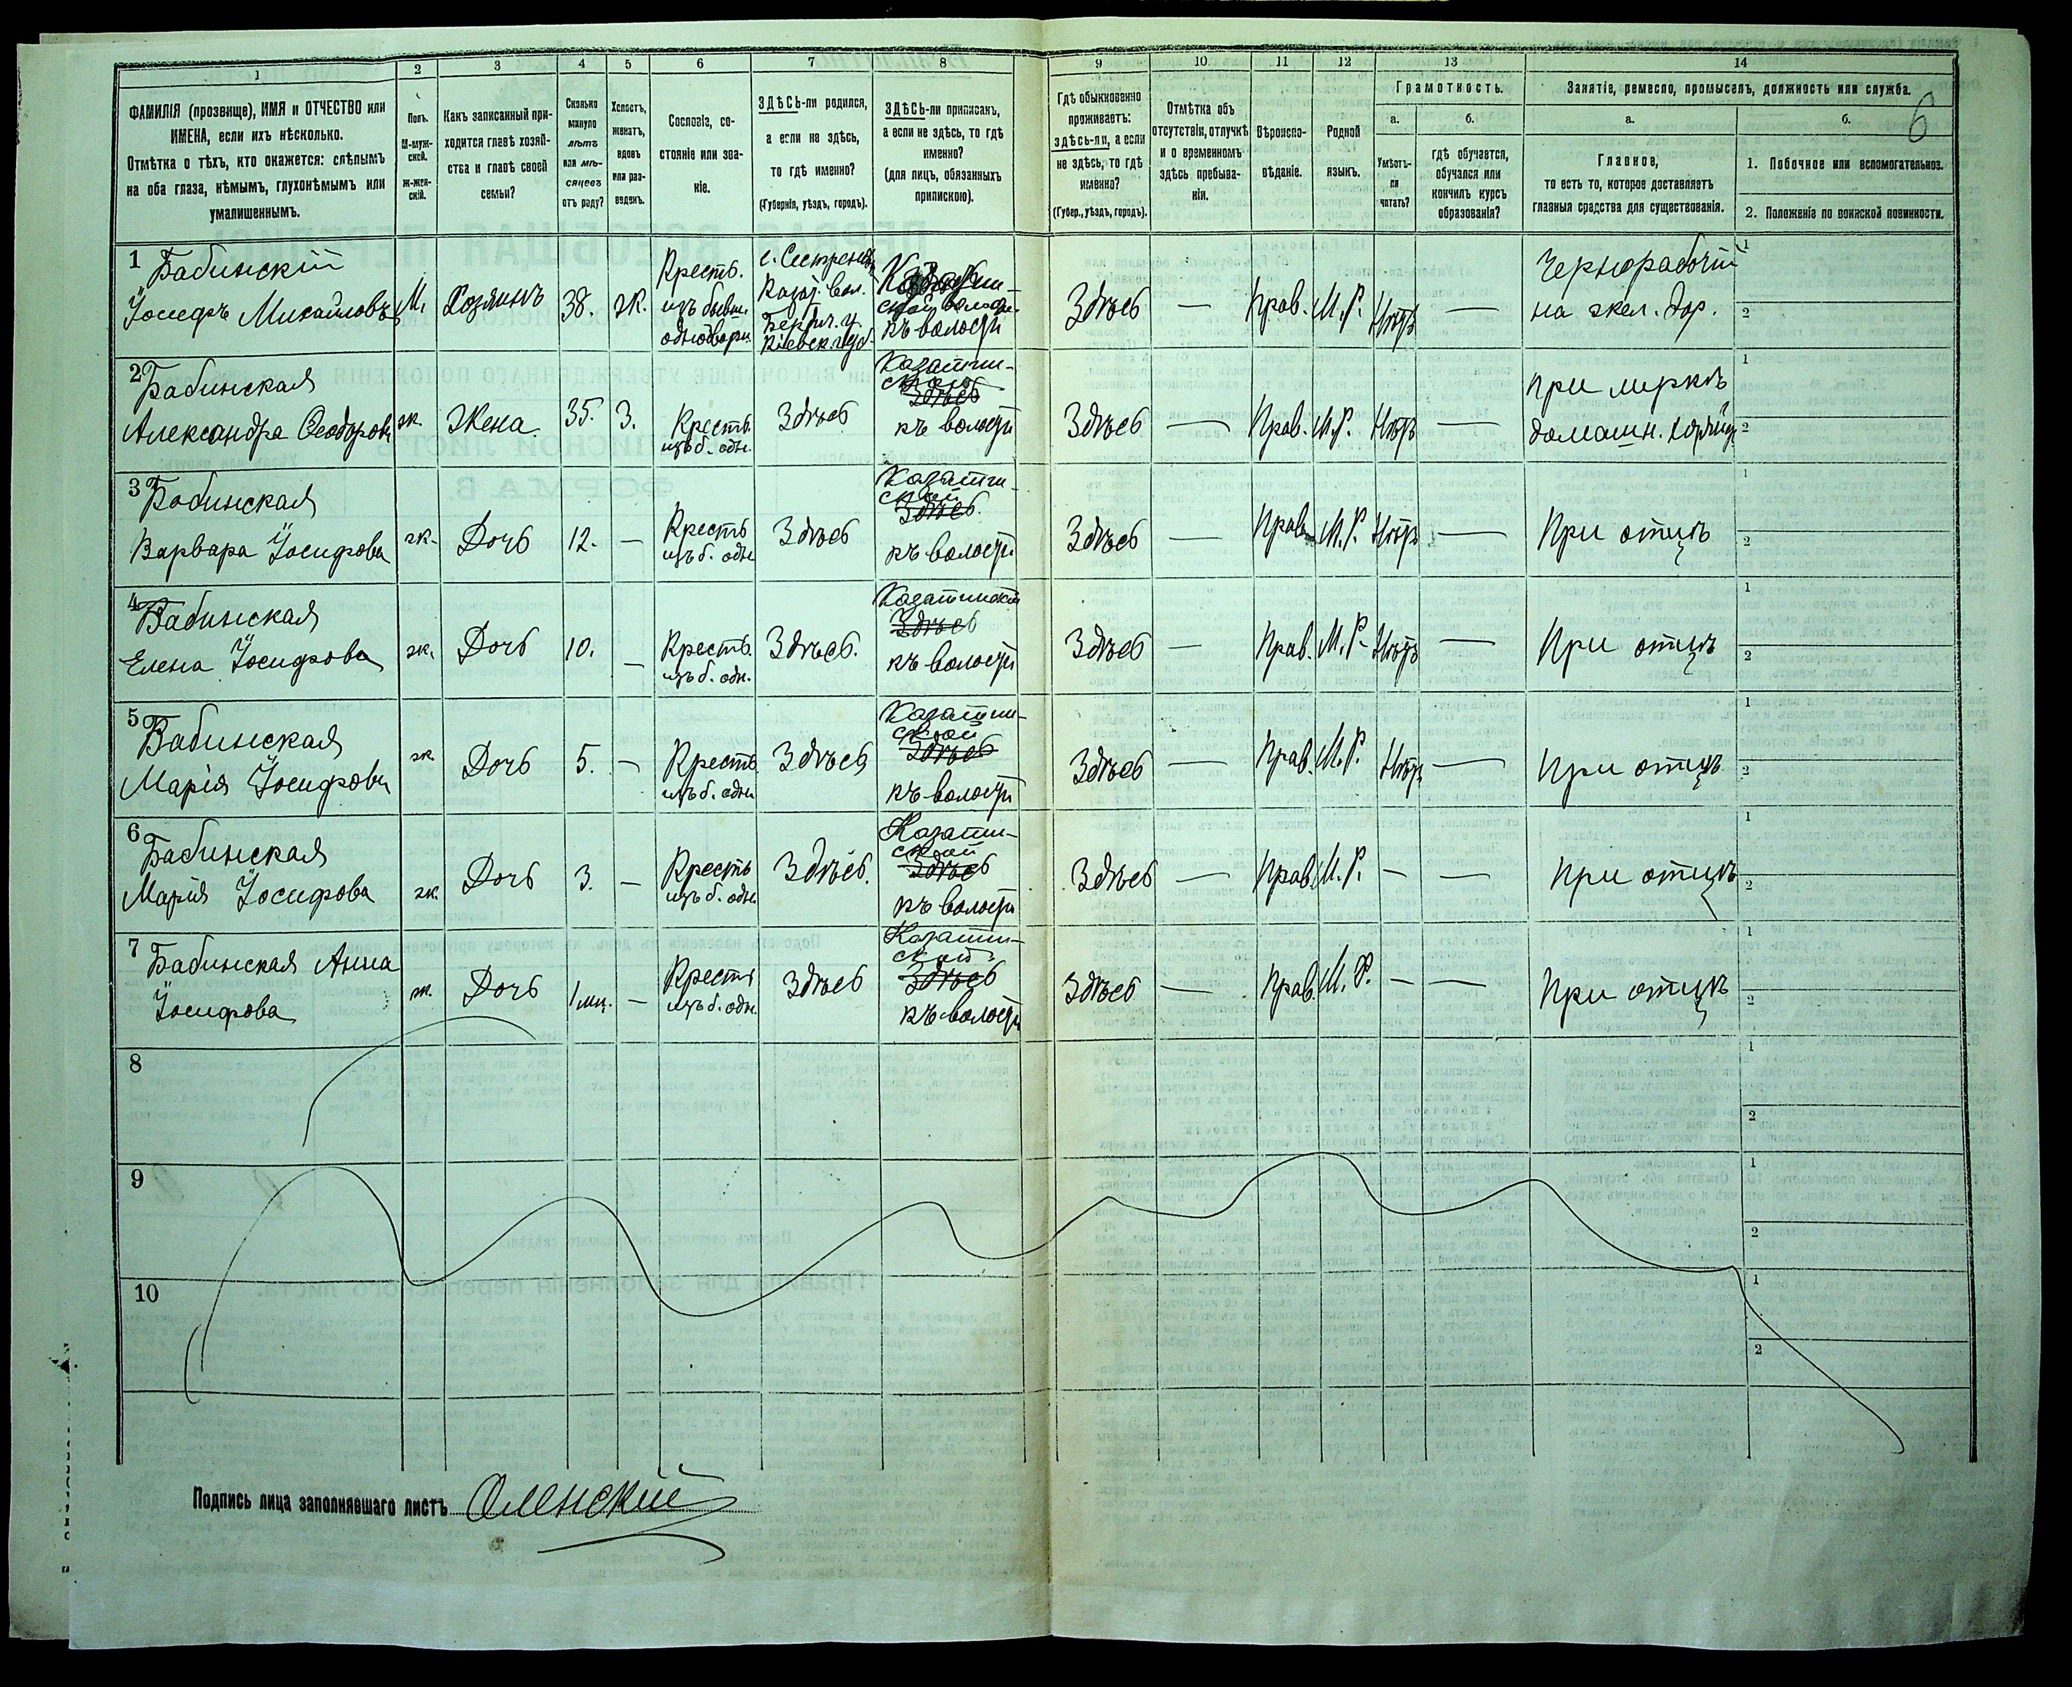 1
2
3
4
5
6
7
8
9
10
11
12
13
14
ФАМИЛІЯ (прозвище), ИМЯ и ОТЧЕСТВО или
ИМЕНА, если ихъ нѣсколько.
Отмѣтка о тѣхъ, кто окажется: слѣпымъ
на оба глаза, нѣмымъ, глухонѣмымъ или
умалишеннымъ.
Полъ.
М-муж-
ской.
Ж-жен-
скій.
Какъ записанный при-
ходится главѣ хозяй-
ства и главѣ своей
семьи?
Сколько
минуло
лѣтъ
или мѣ-
сяцевъ
отъ роду?
Холостъ,
женатъ,
вдовъ
или раз-
веденъ.
Сословіе, со-
стояніе или зва-
ніе.
ЗДѢСЬ-ли родился,
а если не здѣсь,
то гдѣ именно?
(Губернія, уѣздъ, городъ).
ЗДѢСЬ-ли приписанъ,
а если не здѣсь, то гдѣ
именно?
(для лицъ, обязанныхъ
припискою).
Гдѣ обыкновенно
проживаетъ:
здѣсь-ли, а если
не здѣсь, то гдѣ
именно?
(Губер., уѣздъ, городъ).
Отмѣтка объ
отсутствіи, отлучкѣ
и о временномъ
здѣсь пребыва-
ніи.
Вѣроиспо-
вѣданіе.
Родной
языкъ.
Грамотность.
а.
Умѣетъ-
ли
читать?
б.
гдѣ обучается,
обучался или
кончилъ курсъ
образованія?
Занятіе, ремесло, промыселъ, должность или служба.
а.
Главное,
то есть то, которое доставляетъ
главныя средства для существованія.
б.
6
1. Побочное или вспомогательное.
2. Положеніе по воинской повинности.
1 Бабинскій
Іосифъ Михайловъ
М.
Хозяинъ
38.
ж.
Крестъ.
изъ бывш.
однодворц.
Казат. вол.
Бердич. у.
Кіевск. губ.
къ волости
Здѣсь
—
Прав.
М. Р.
Нѣтъ
—
Чернорабочій
на жел. дор.
1
2
2 Бабинская
Александра Ѳеодорова
ж.
Жена
35.
З.
Крестъ.
изъ б. одн.
Здѣсь
Казатин-
ской
Здѣсь
къ волости
Здѣсь
—
Прав.
М. Р.
Нѣтъ
—
при мужѣ
домашн. хозяйс.
1
2
3 Бабинская
Варвара Іосифова
ж.
Дочь
12.
—
Крестъ.
изъ б. одн.
Здѣсь
Казатин-
ской
Здѣсь.
къ волости
Здѣсь
—
Прав.
М. Р.
Нѣтъ
—
При отцѣ
1
2
4 Бабинская
Елена Іосифова
ж.
Дочь
10.
—
Крестъ.
изъ б. одн.
Здѣсь.
Казатинской
Здѣсь
къ волости
Здѣсь
—
Прав.
М. Р.
Нѣтъ
—
При отцѣ
1
2
5 Бабинская
Марія Іосифова
ж.
Дочь
5.
—
Крестъ.
изъ б. одн.
Здѣсь
Казатин-
ской
Здѣсь
къ волости
Здѣсь
—
Прав.
М. Р.
Нѣтъ
—
При отцѣ
1
2
6 Бабинская
Марія Іосифова
ж.
Дочь
3.
—
Крестъ.
изъ б. одн.
Здѣсь.
Казатин-
ской
Здѣсь
къ волости
Здѣсь
—
Прав.
М. Р.
—
—
При отцѣ
1
2
7 Бабинская Анна
Іосифова
ж.
Дочь
1 мц.
—
Крестъ.
изъ б. одн.
Здѣсь
Казатин-
ской
Здѣсь
къ волости
Здѣсь
—
Прав.
М. Р.
—
—
При отцѣ
1
2
8
1
2
9
1
2
10
1
2
Подпись лица заполнявшаго листъ Оленскій